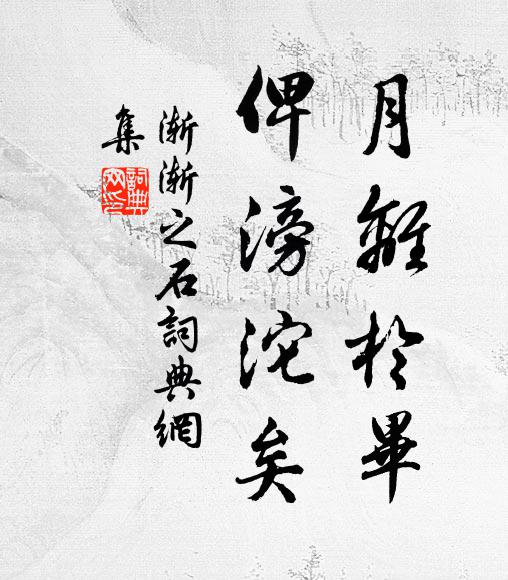 月離於畢
俾滂沱矣
漸漸之石詞典網
集
詞典
网